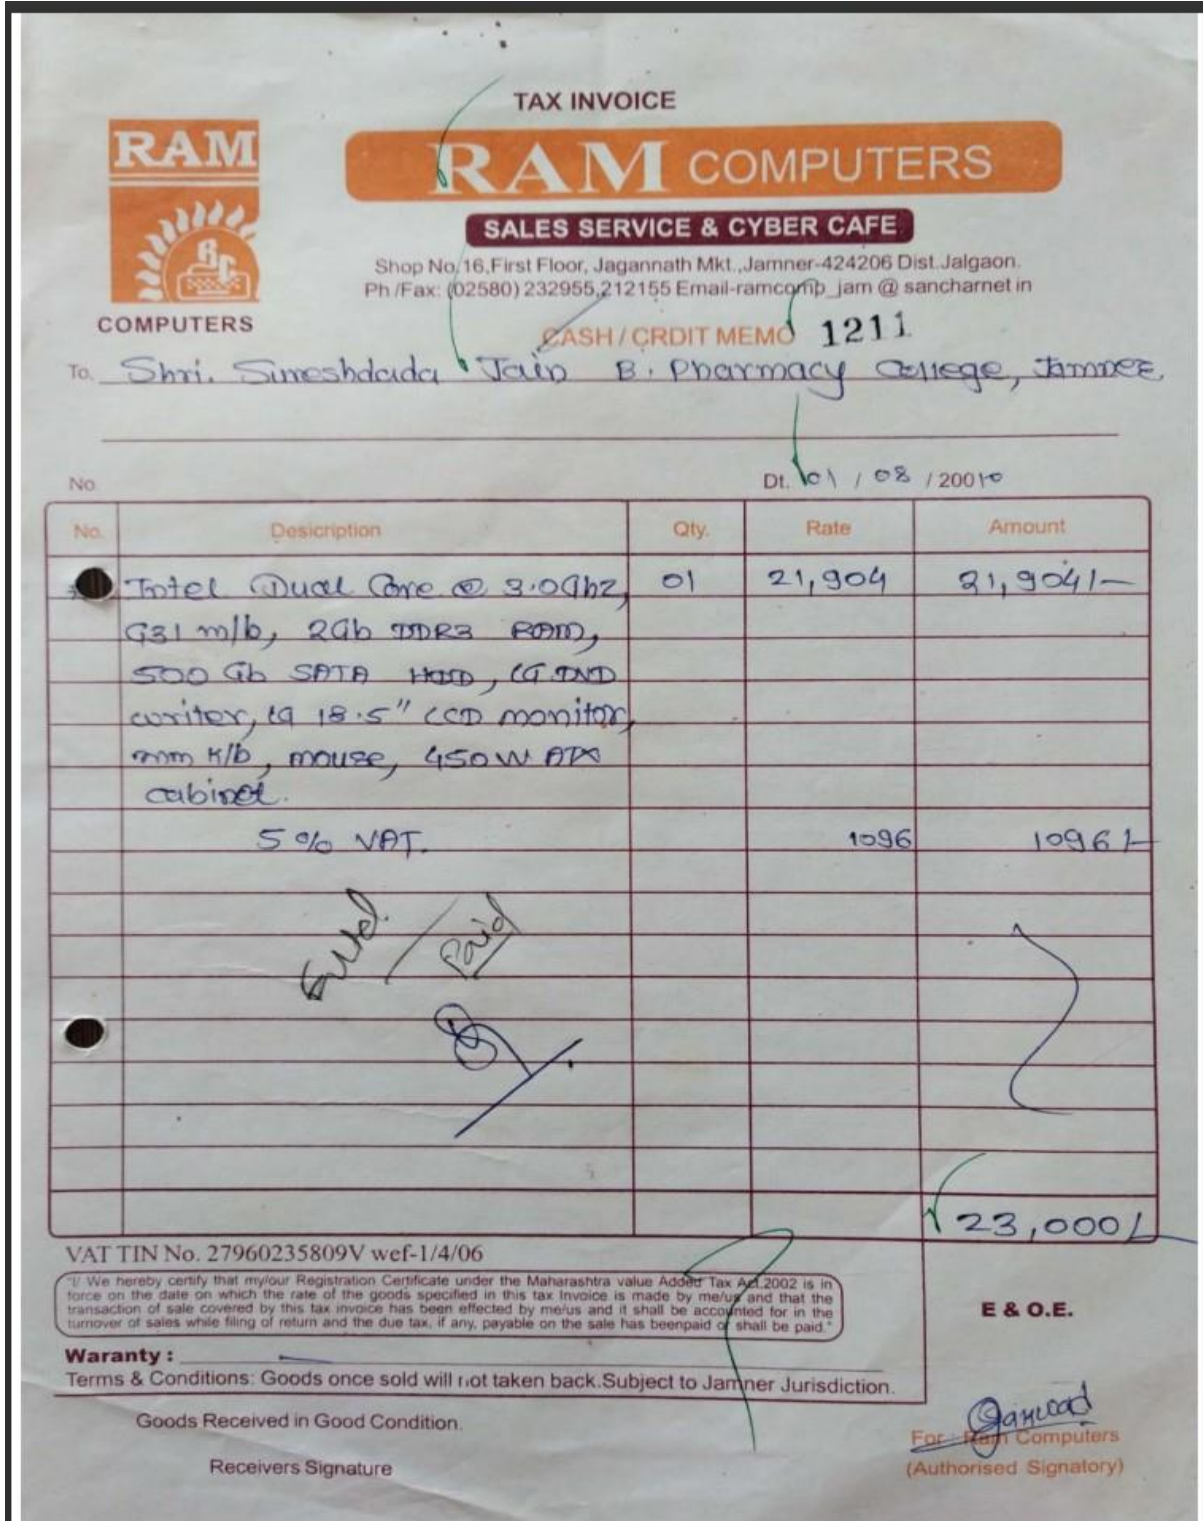 TAX INVOICE
RAM
RAM COMPUTERS
SALES SERVICE & CYBER CAFE
Shop No.16,First Floor, Jagannath Mkt.,Jamner-424206 Dist.Jalgaon.
Ph /Fax: (02580) 232955,212155 Email-ramcomp_jam @ sancharnet in
COMPUTERS
CASH / CRDIT MEMO 1211
To. Shri. Sureshdada Jain B. Pharmacy College, Jamner
No Dt. 01 / 08 / 20010
No. Desicription Qty. Rate Amount
Intel Dual Core @ 3.0Ghz, 01 21,904 21,904/-
G31 m/b, 2Gb DDR3 RAM,
500 Gb SATA HDD, LG DVD
writer, LG 18.5" LCD monitor,
mm K/b, mouse, 450W ATX
cabinet.
5 % VAT. 1096 1096/-
Paid
23,000/-
VAT TIN No. 27960235809V wef-1/4/06
"I/ We hereby certify that my/our Registration Certificate under the Maharashtra value Added Tax Act.2002 is in
force on the date on which the rate of the goods specified in this tax Invoice is made by me/us and that the
transaction of sale covered by this tax invoice has been effected by me/us and it shall be accounted for in the
turnover of sales while filing of return and the due tax, if any, payable on the sale has beenpaid or shall be paid."
E & O.E.
Waranty :
Terms & Conditions: Goods once sold will not taken back.Subject to Jamner Jurisdiction.
Goods Received in Good Condition.
For : Ram Computers
Receivers Signature (Authorised Signatory)